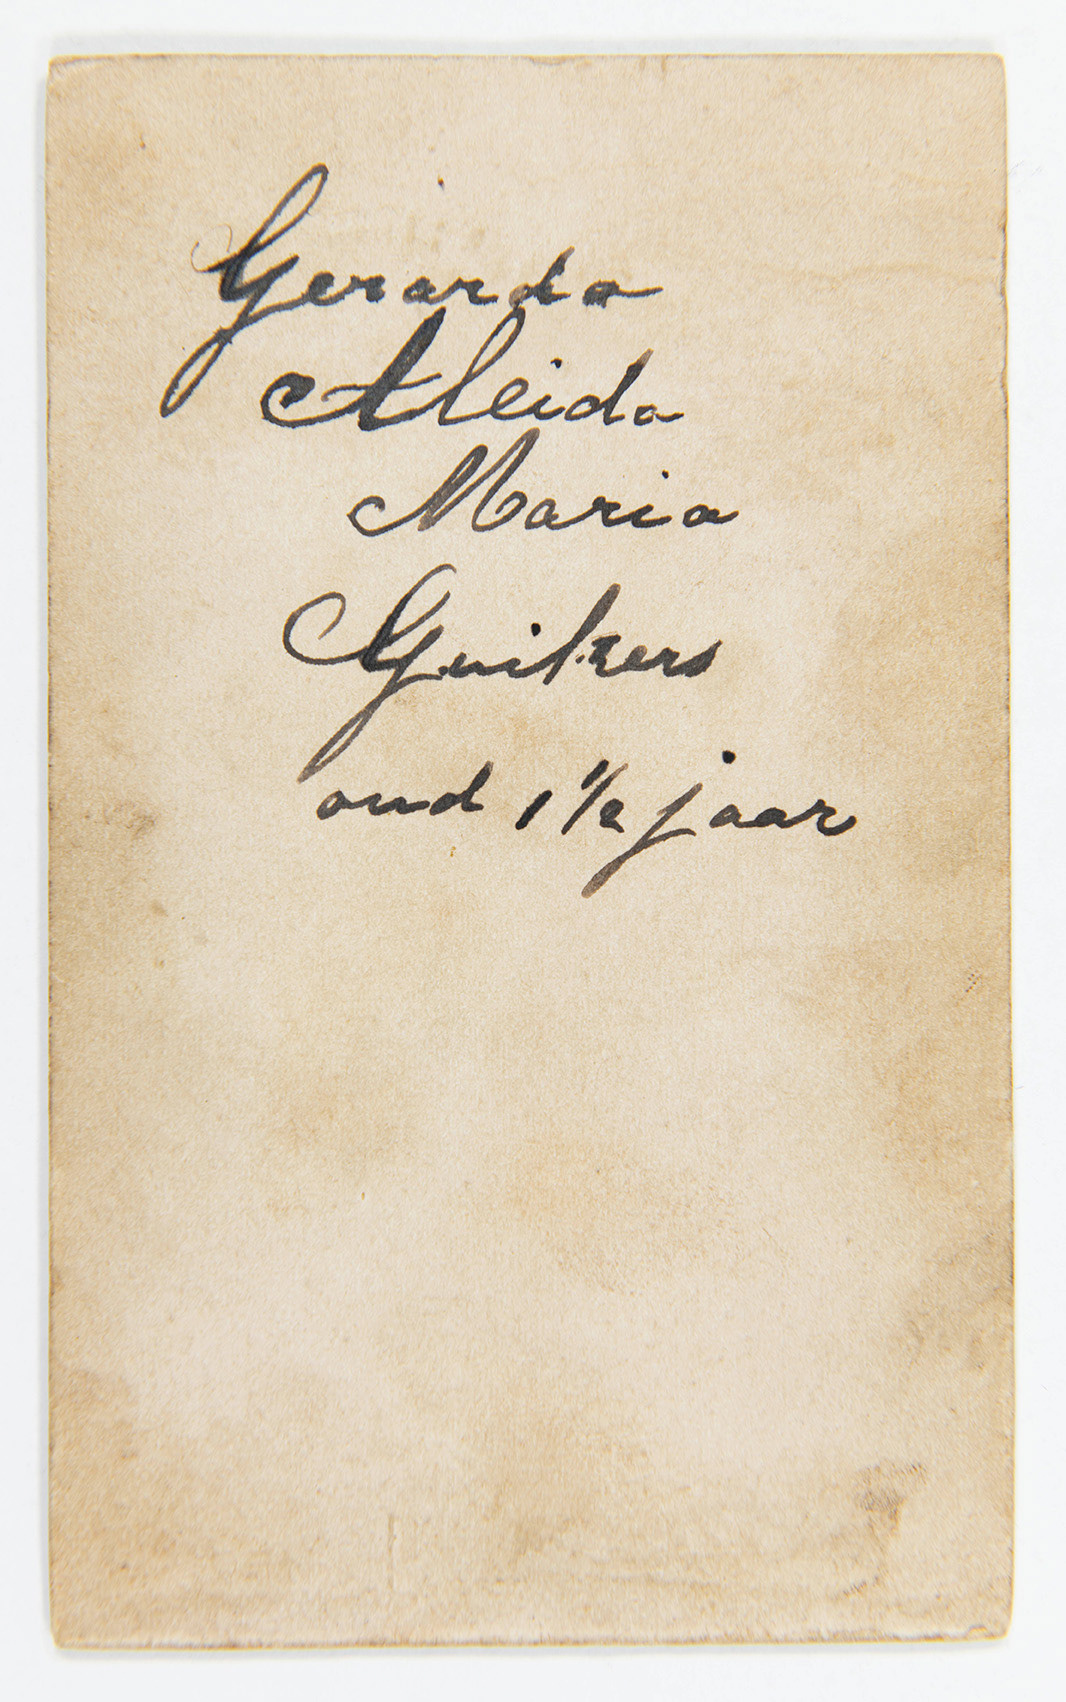 Gerarda
Aleida
Maria
Guikers
oud 1 1/2 jaar